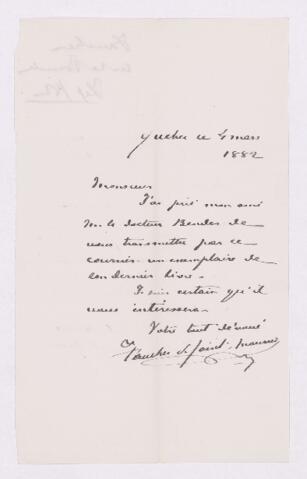 Quebec ce 4 mars
1882
Monsieur
J'ai prié mon ami
M. le docteur Bender de
vous transmettre par ce
courrier un exemplaire de
son dernier livre.
Je suis certain qu'il
vous intéressera.
Votre tout dévoué
Faucher de Saint-Maurice